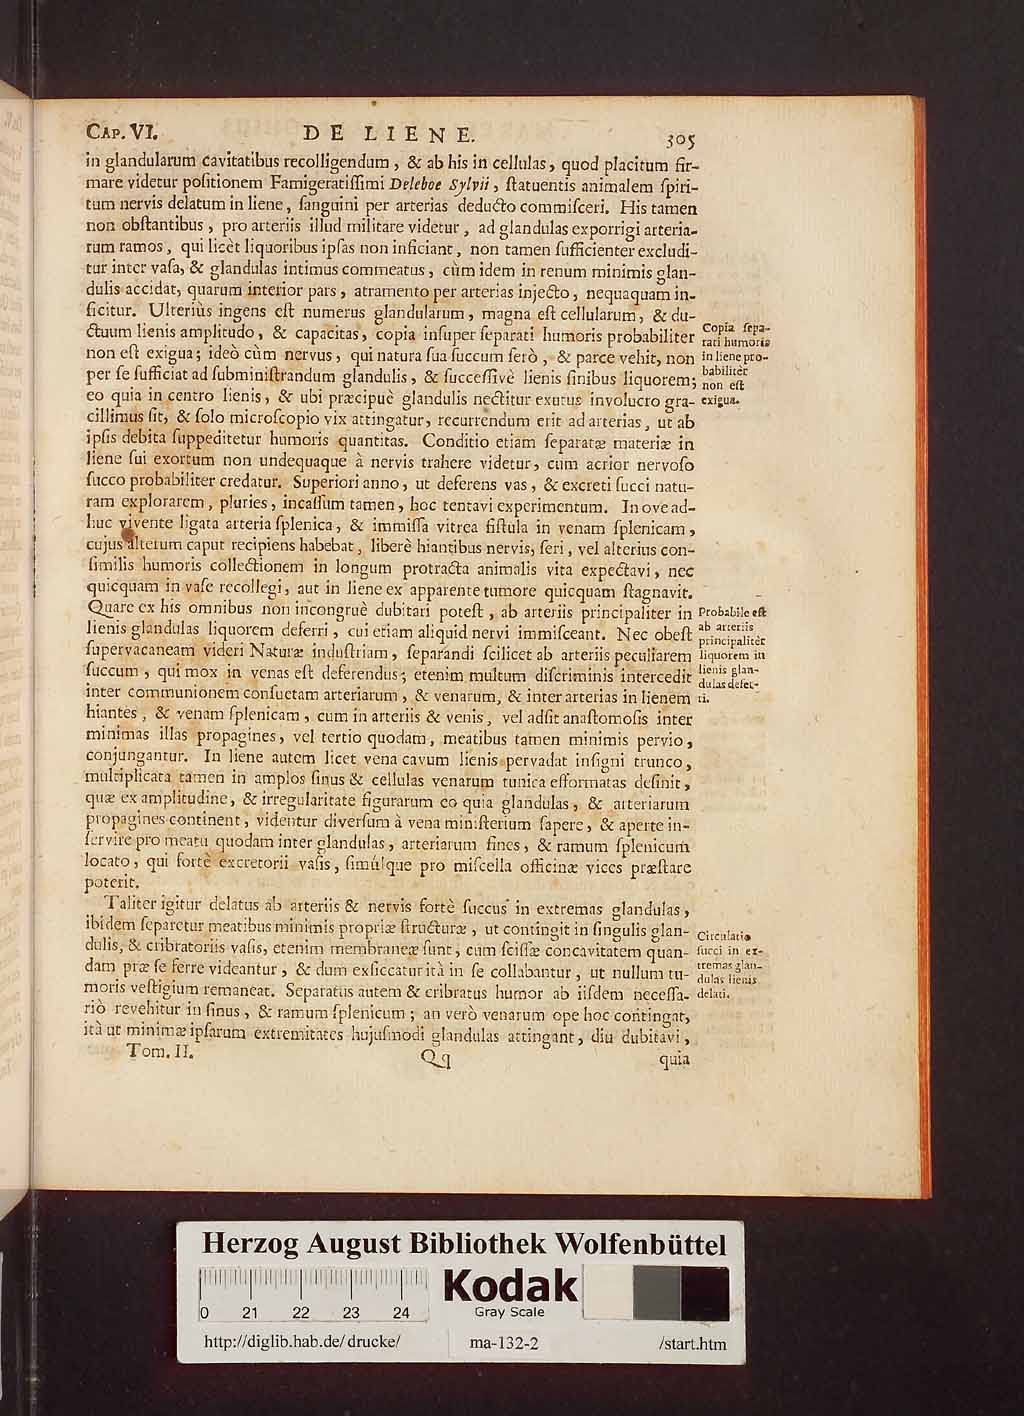 CAP. VI. DE LIENE. 305
in glandularum cavitatibus recolligendum, & ab his in cellulas, quod placitum fir-
mare videtur poſitionem Famigeratiſſimi Deleboe Sylvii, ſtatuentis animalem ſpiri-
tum nervis delatum in liene, ſanguini per arterias deducto commiſceri. His tamen
non obſtantibus, pro arteriis illud militare videtur, ad glandulas exporrigi arteria-
rum ramos, qui licèt liquoribus ipſas non inficiant, non tamen ſufficienter excludi-
tur inter vaſa, & glandulas intimus commeatus, cùm idem in renum minimis glan-
dulis accidat, quarum interior pars, atramento per arterias injecto, nequaquam in-
ficitur. Ulteriùs ingens eſt numerus glandularum, magna eſt cellularum, & du-
ctuum lienis amplitudo, & capacitas, copia inſuper ſeparati humoris probabiliter
non eſt exigua; ideò cùm nervus, qui natura ſua ſuccum ſerò, & parce vehit, non
per ſe ſufficiat ad ſubminiſtrandum glandulis, & ſucceſſivè lienis ſinibus liquorem;
eo quia in centro lienis, & ubi præcipuè glandulis nectitur exutus involucro gra-
cillimus ſit, & ſolo microſcopio vix attingatur, recurrendum erit ad arterias, ut ab
ipſis debita ſuppeditetur humoris quantitas. Conditio etiam ſeparatæ materiæ in
liene ſui exortum non undequaque à nervis trahere videtur, cum acrior nervoſo
ſucco probabiliter credatur. Superiori anno, ut deferens vas, & excreti ſucci natu-
ram explorarem, pluries, incaſſum tamen, hoc tentavi experimentum. In ove ad-
huc vivente ligata arteria ſplenica, & immiſſa vitrea fiſtula in venam ſplenicam,
cujus alterum caput recipiens habebat, liberè hiantibus nervis, ſeri, vel alterius con-
ſimilis humoris collectionem in longum protracta animalis vita expectavi, nec
quicquam in vaſe recollegi, aut in liene ex apparente tumore quicquam ſtagnavit.
Quare ex his omnibus non incongruè dubitari poteſt, ab arteriis principaliter in
lienis glandulas liquorem deferri, cui etiam aliquid nervi immiſceant. Nec obeſt
ſupervacaneam videri Naturæ induſtriam, ſeparandi ſcilicet ab arteriis peculiarem
ſuccum, qui mox in venas eſt deferendus; etenim multum diſcriminis intercedit
inter communionem conſuetam arteriarum, & venarum, & inter arterias in lienem
hiantes, & venam ſplenicam, cum in arteriis & venis, vel adſit anaſtomoſis inter
minimas illas propagines, vel tertio quodam, meatibus tamen minimis pervio,
conjungantur. In liene autem licet vena cavum lienis pervadat inſigni trunco,
multiplicata tamen in amplos ſinus & cellulas venarum tunica efformatas deſinit,
quæ ex amplitudine, & irregularitate figurarum eo quia glandulas, & arteriarum
propagines continent, videntur diverſum à vena miniſterium ſapere, & aperte in-
ſervire pro meatu quodam inter glandulas, arteriarum fines, & ramum ſplenicum
locato, qui fortè excretorii vaſis, ſimúlque pro miſcella officinæ vices præſtare
poterit.
Taliter igitur delatus ab arteriis & nervis fortè ſuccus in extremas glandulas,
ibidem ſeparetur meatibus minimis propriæ ſtructuræ, ut contingit in ſingulis glan-
dulis, & cribratoriis vaſis, etenim membraneæ ſunt, cum ſciſſæ concavitatem quan-
dam præ ſe ferre videantur, & dum exſiccatur ità in ſe collabantur, ut nullum tu-
moris veſtigium remaneat. Separatus autem & cribratus humor ab iiſdem neceſſa-
riò revehitur in ſinus, & ramum ſplenicum; an verò venarum ope hoc contingat,
ità ut minimæ ipſarum extremitates hujuſmodi glandulas attingant, diu dubitavi,
Tom. II. Qq quia
Copia ſepa-
rati humoris
in liene pro-
babilitèr
non eſt
exigua.
Probabile eſt
ab arteriis
principalitèr
liquorem in
lienis glan-
dulas defer-
ri.
Circulatio
ſucci in ex-
tremas glan-
dulas lienis
delati.
Herzog August Bibliothek Wolfenbüttel
Kodak
Gray Scale
0 21 22 23 24
http://diglib.hab.de/drucke/ ma-132-2 /start.htm